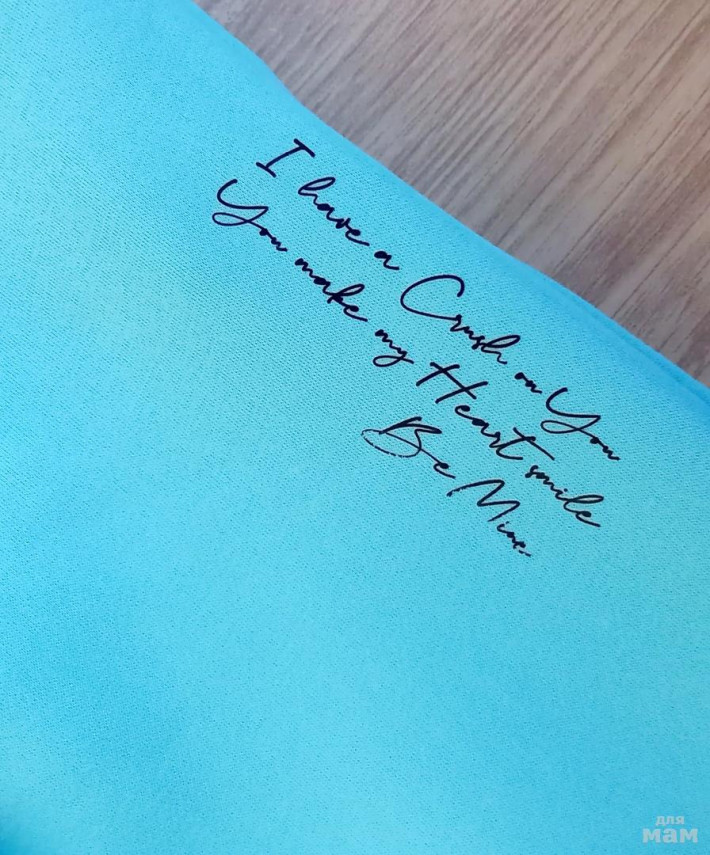 I have a Crush on You
You make my Heart smile
Be Mine.
для
мам